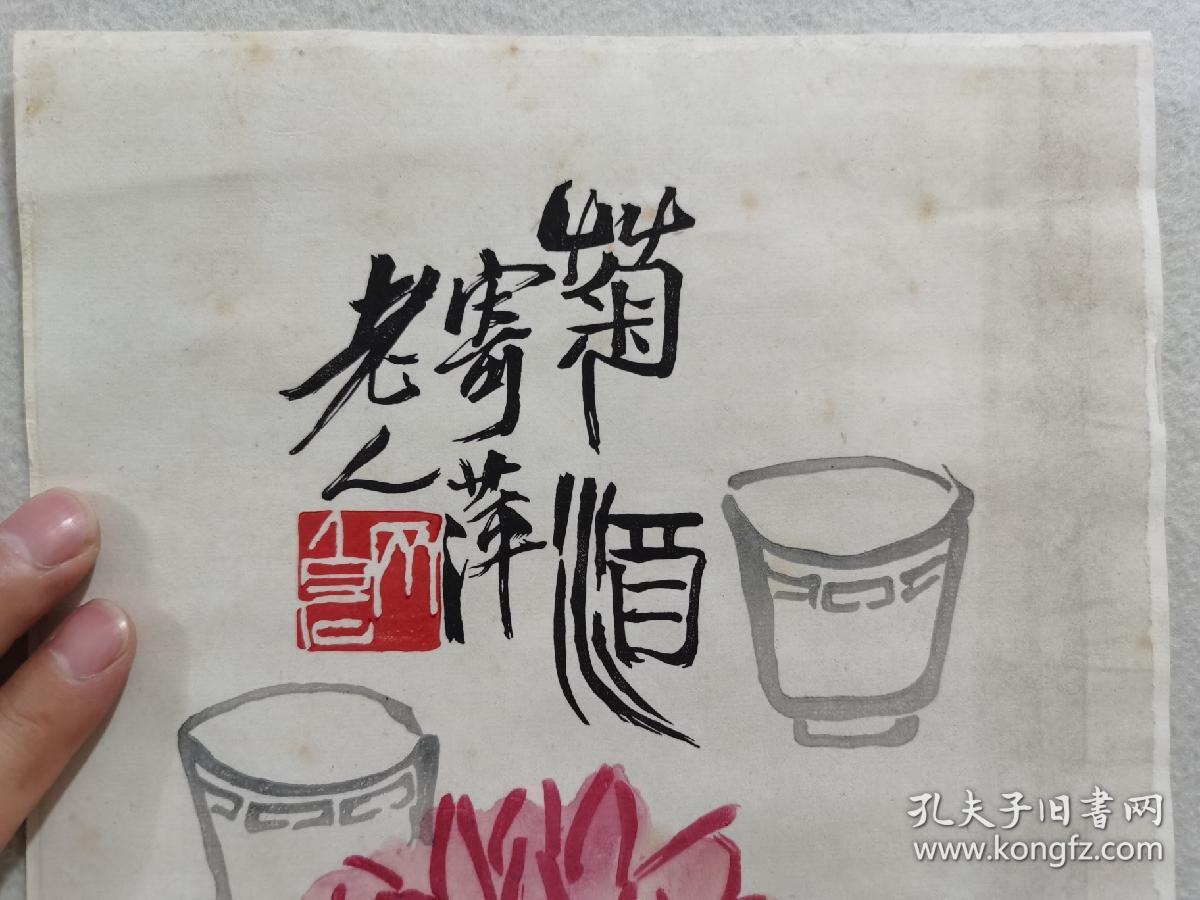 菊酒
寄萍
老人
孔夫子旧書网
www.kongfz.com